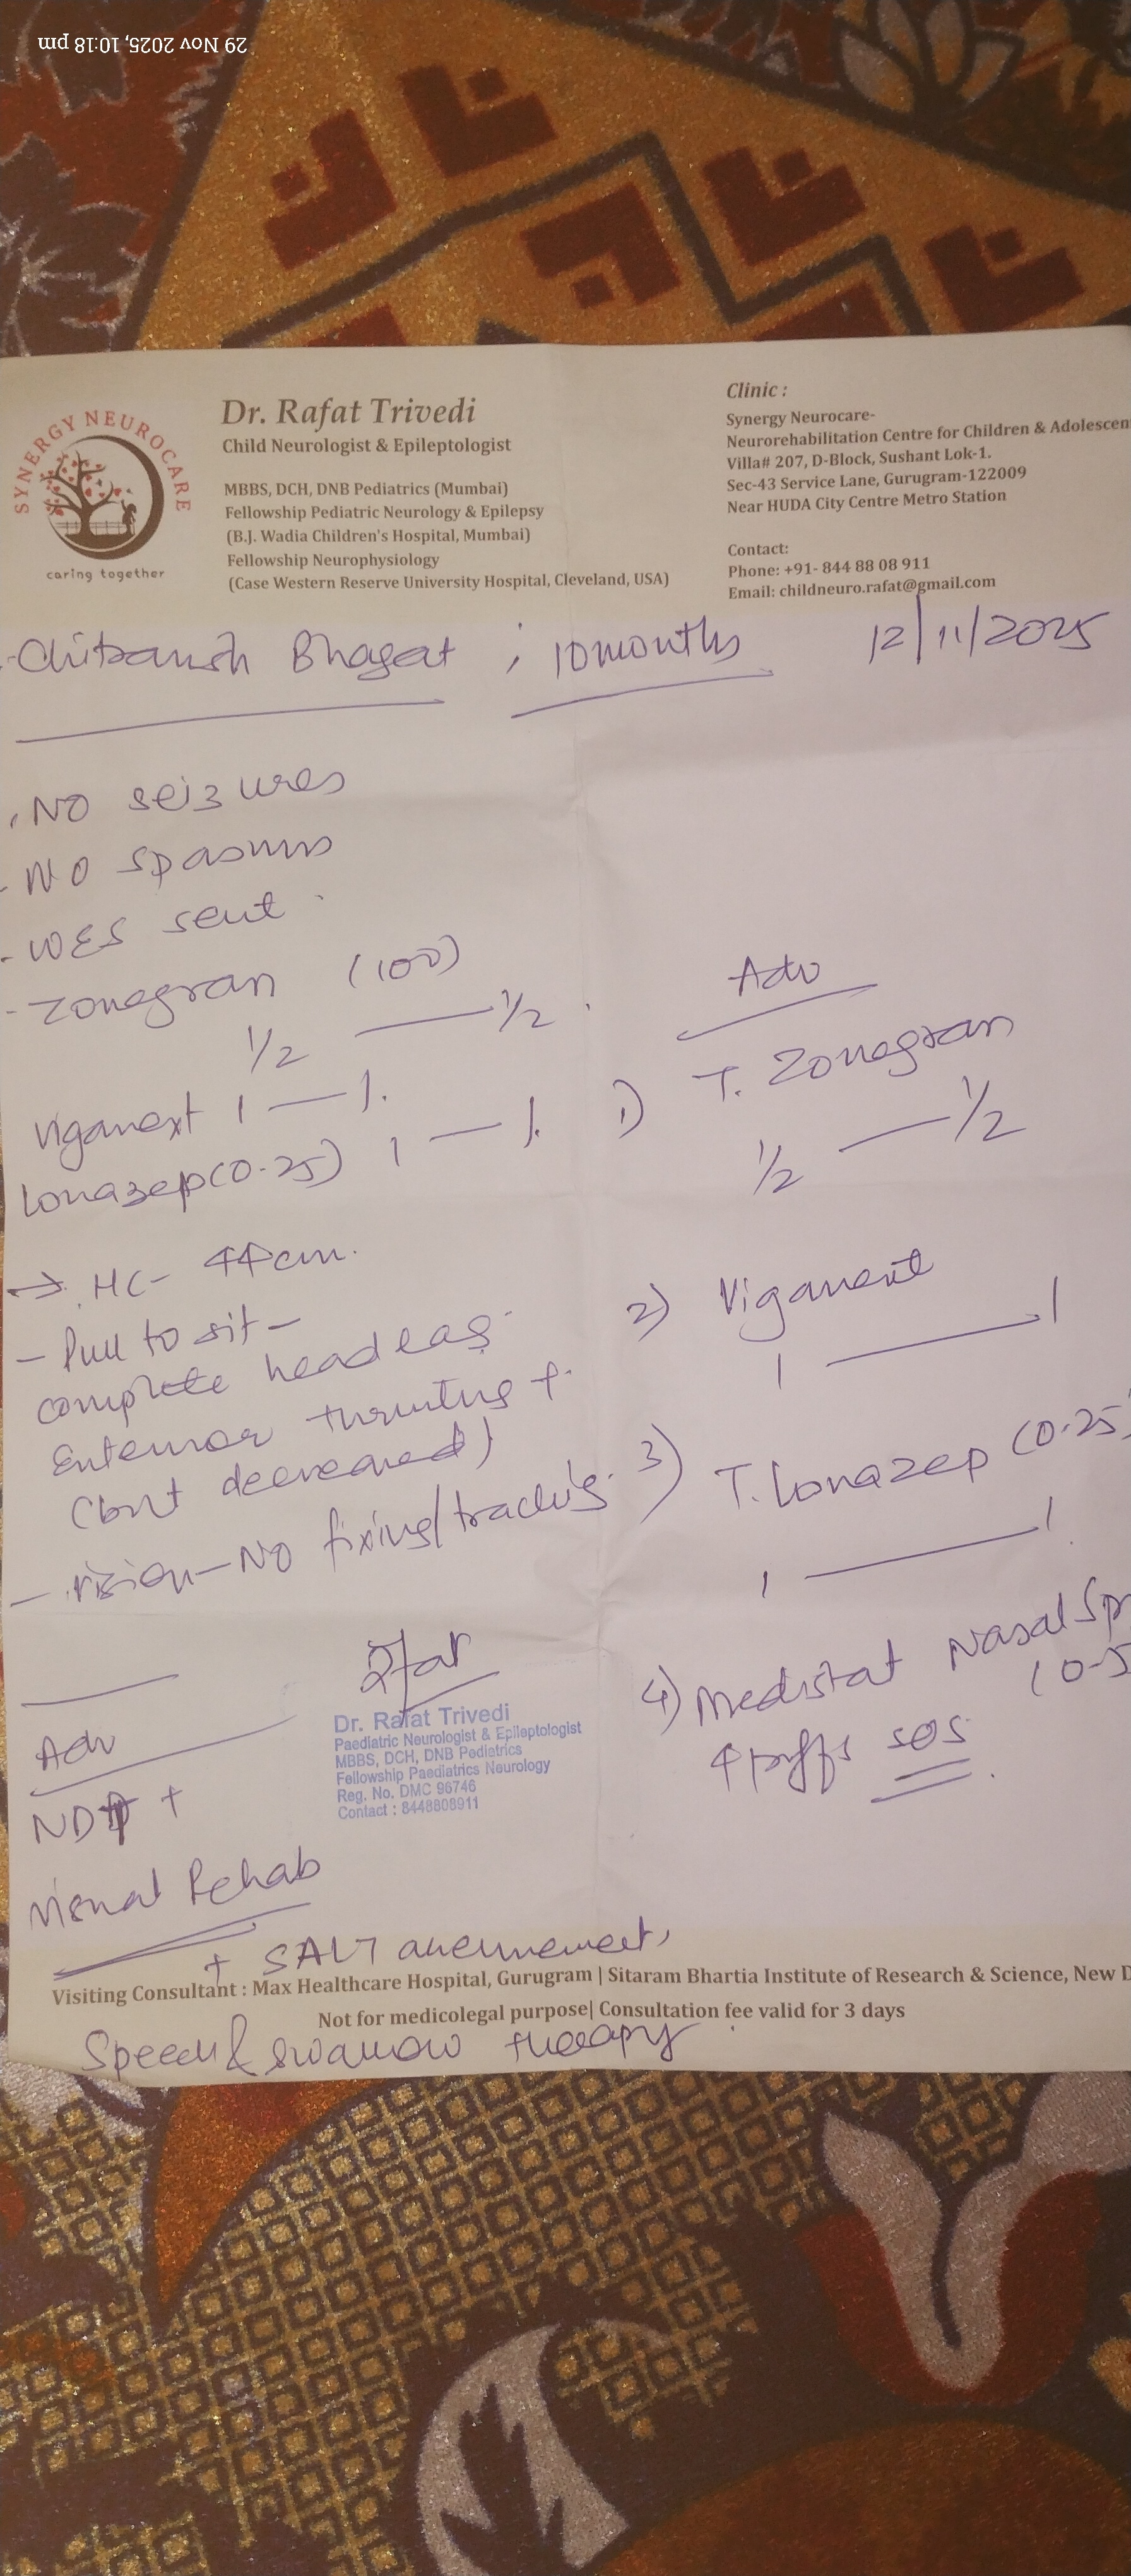 29 Nov 2025, 10:18 pm
SYNERGY NEUROCARE
caring together
Dr. Rafat Trivedi
Child Neurologist & Epileptologist
MBBS, DCH, DNB Pediatrics (Mumbai)
Fellowship Pediatric Neurology & Epilepsy
(B.J. Wadia Children's Hospital, Mumbai)
Fellowship Neurophysiology
(Case Western Reserve University Hospital, Cleveland, USA)
Clinic :
Synergy Neurocare-
Neurorehabilitation Centre for Children & Adolescen
Villa# 207, D-Block, Sushant Lok-1.
Sec-43 Service Lane, Gurugram-122009
Near HUDA City Centre Metro Station
Contact:
Phone: +91- 844 88 08 911
Email: childneuro.rafat@gmail.com
Chitransh Bhagat ; 10 months 12/11/2025
- NO seizures
- NO spasms
- WES sent
- Zonegran (100)
1/2 — 1/2
Viganext 1 — 1.
Lonazep (0.25) 1 — 1.
→ HC- 44cm.
- Pull to sit -
complete head lag
Extensor thrusting +
(but decreased)
- vision - NO fixing/tracking.
Adv
1) T. Zonegran
1/2 — 1/2
2) Viganext
1 — 1
3) T. Lonazep (0.25)
1 — 1
4) Medistat Nasal Spr
(0.5
4 puffs SOS
Dr. Rafat Trivedi
Paediatric Neurologist & Epileptologist
MBBS, DCH, DNB Pediatrics
Fellowship Paediatrics Neurology
Reg. No. DMC 96746
Contact : 8448808911
Adv
NDT +
Visual Rehab
+ SALT assessment
Visiting Consultant : Max Healthcare Hospital, Gurugram | Sitaram Bhartia Institute of Research & Science, New D
Not for medicolegal purpose| Consultation fee valid for 3 days
Speech & swallow therapy